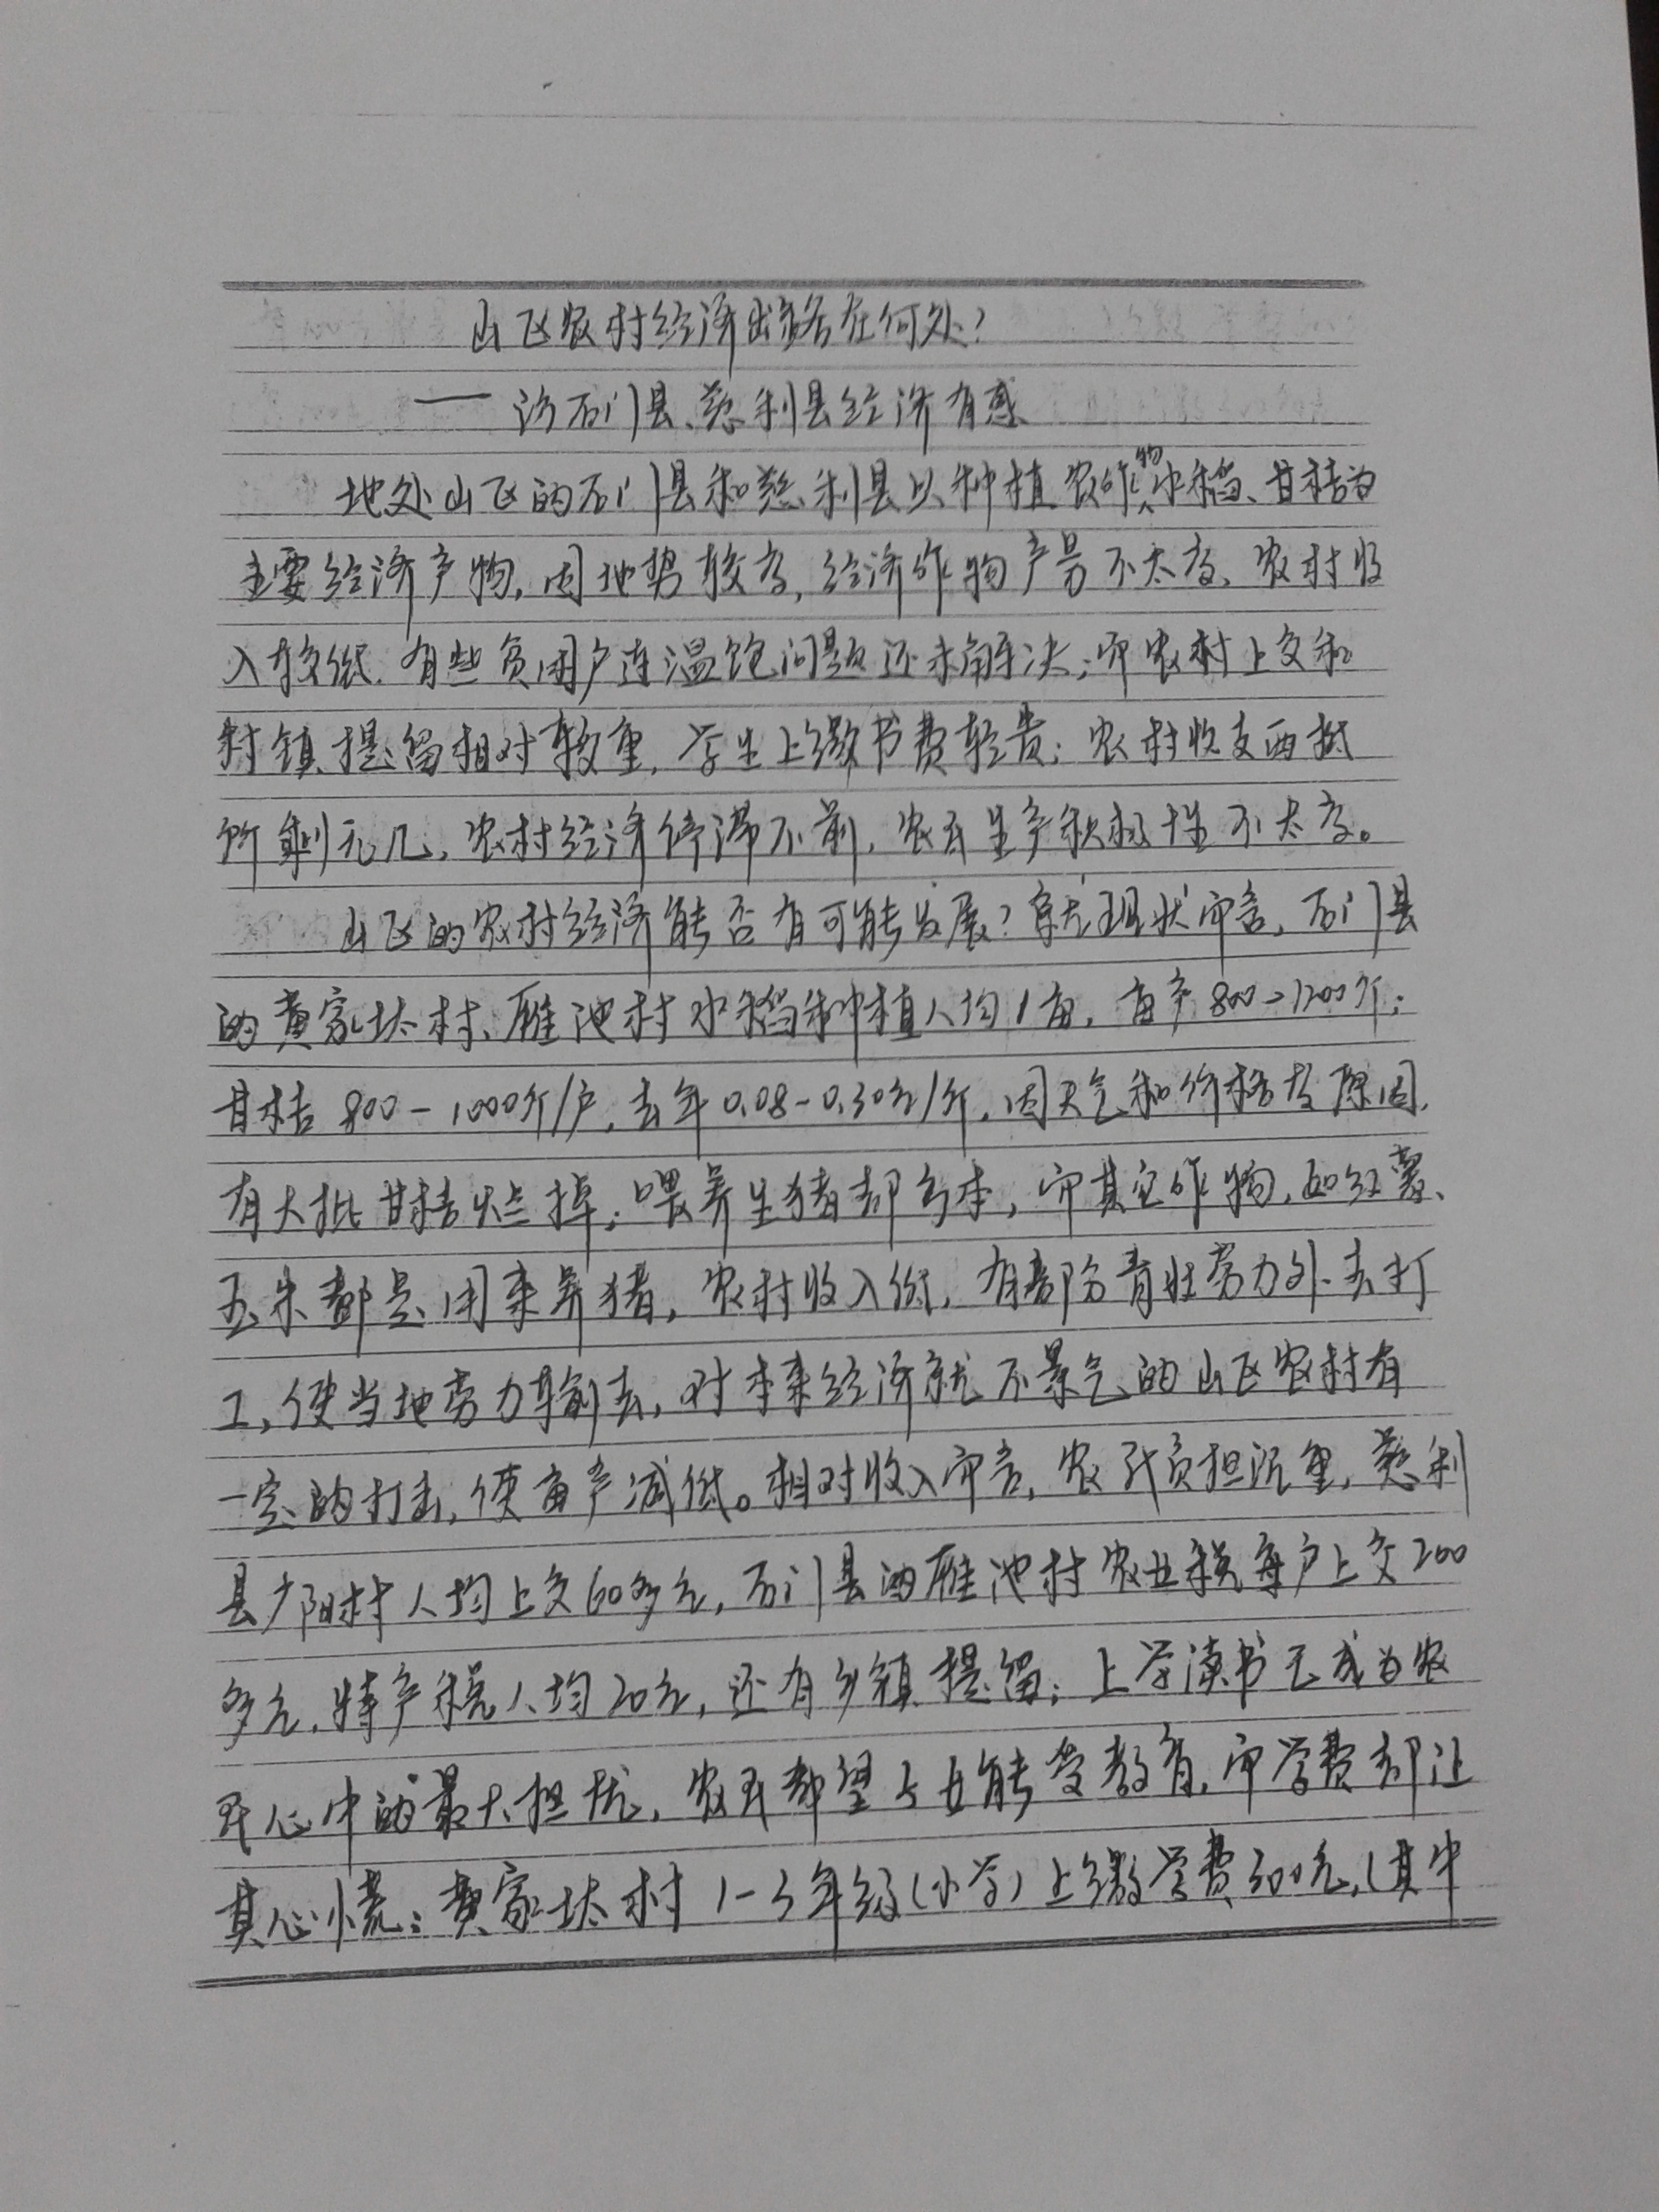 山区农村经济出路在何处？
——访石门县、慈利县经济有感
地处山区的石门县和慈利县以种植农作物水稻、甘桔为
主要经济产物，因地势较高，经济作物产量不太高、农村收
入较低．有些贫困户连温饱问题还未解决；而农村上交和
村镇提留相对较重，学生上缴书费较贵；农村收支两抵
所剩无几，农村经济停滞不前，农民生产积极性不太高。
山区的农村经济能否有可能发展？就现状而言，石门县
的黄家垯村、雁池村水稻种植人均1亩，亩产800-1200斤；
甘桔800-1000斤/户，去年0.08-0.30元/斤，因天气和价格及原因，
有大批甘桔烂掉；喂养生猪却亏本，而其它作物，如红薯、
玉米都是用来养猪，农村收入低，有部分青壮劳力外去打
工，使当地劳力输去，对本来经济就不景气的山区农村有
一定的打击，使亩产减低。相对收入而言，农民负担沉重，慈利
县广阳村人均上交60多元，石门县的雁池村农业税每户上交200
多元，特产税人均20元，还有乡镇提留；上学读书已成为农
民心中的最大担忧，农民都望子女能受教育，而学费却让
其心慌；黄家垯村1-3年级（小学）上缴学费300元，（其中